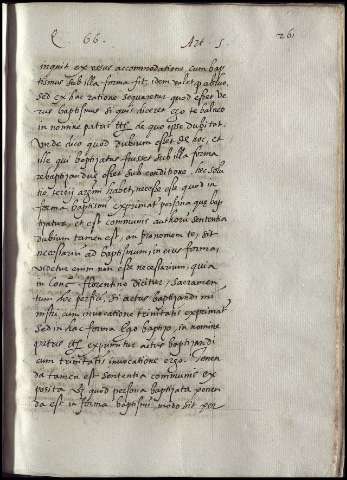 Q. 66. Art. 5. 261
inquit ex usus accommodationi, cum bap
tismus sub illa forma sit, idem valet q abluo
sed ex hac ratione sequaretur quod esset ve
rus baptismus si quis diceret ego te balneo
in nomine patris etc. de quo ipse dubitat.
Unde dico quod dubium esset de hoc, et
ille qui baptizatus fuisset sub illa forma
rebaptizandus esset sub conditione, nec solu
habet, necesse est quod in
forma baptismi exprimat persona que bap
tizatur, et est communis authorũ sententia
dubium tamen est, an pronomem te, sit
necessariũ ad baptismum, in eius forma,
videtur enim non esse necessarium, quia
in conc. florentino dicitur, sacramen
tum hoc perfici, si actus baptizandi mi
nistri cum invocatione trinitatis exprimat
sed in hac forma ego baptizo, in nomine
patris etc. exprimitur actus baptizandi
cum trinitatis invocatione ergo. Tenen
da tamen est sententia communis ex
posita quod persona baptizata ponen
da est in forma baptismi modo sit